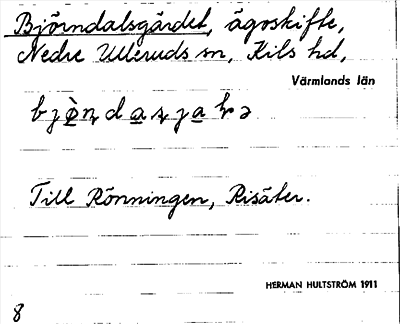 Björndalsgärdet, ägoskifte,
Nedre Ulleruds sn, Kils hd,
Värmlands län
Till Rönningen, Risäter.
HERMAN HULTSTRÖM 1911
8